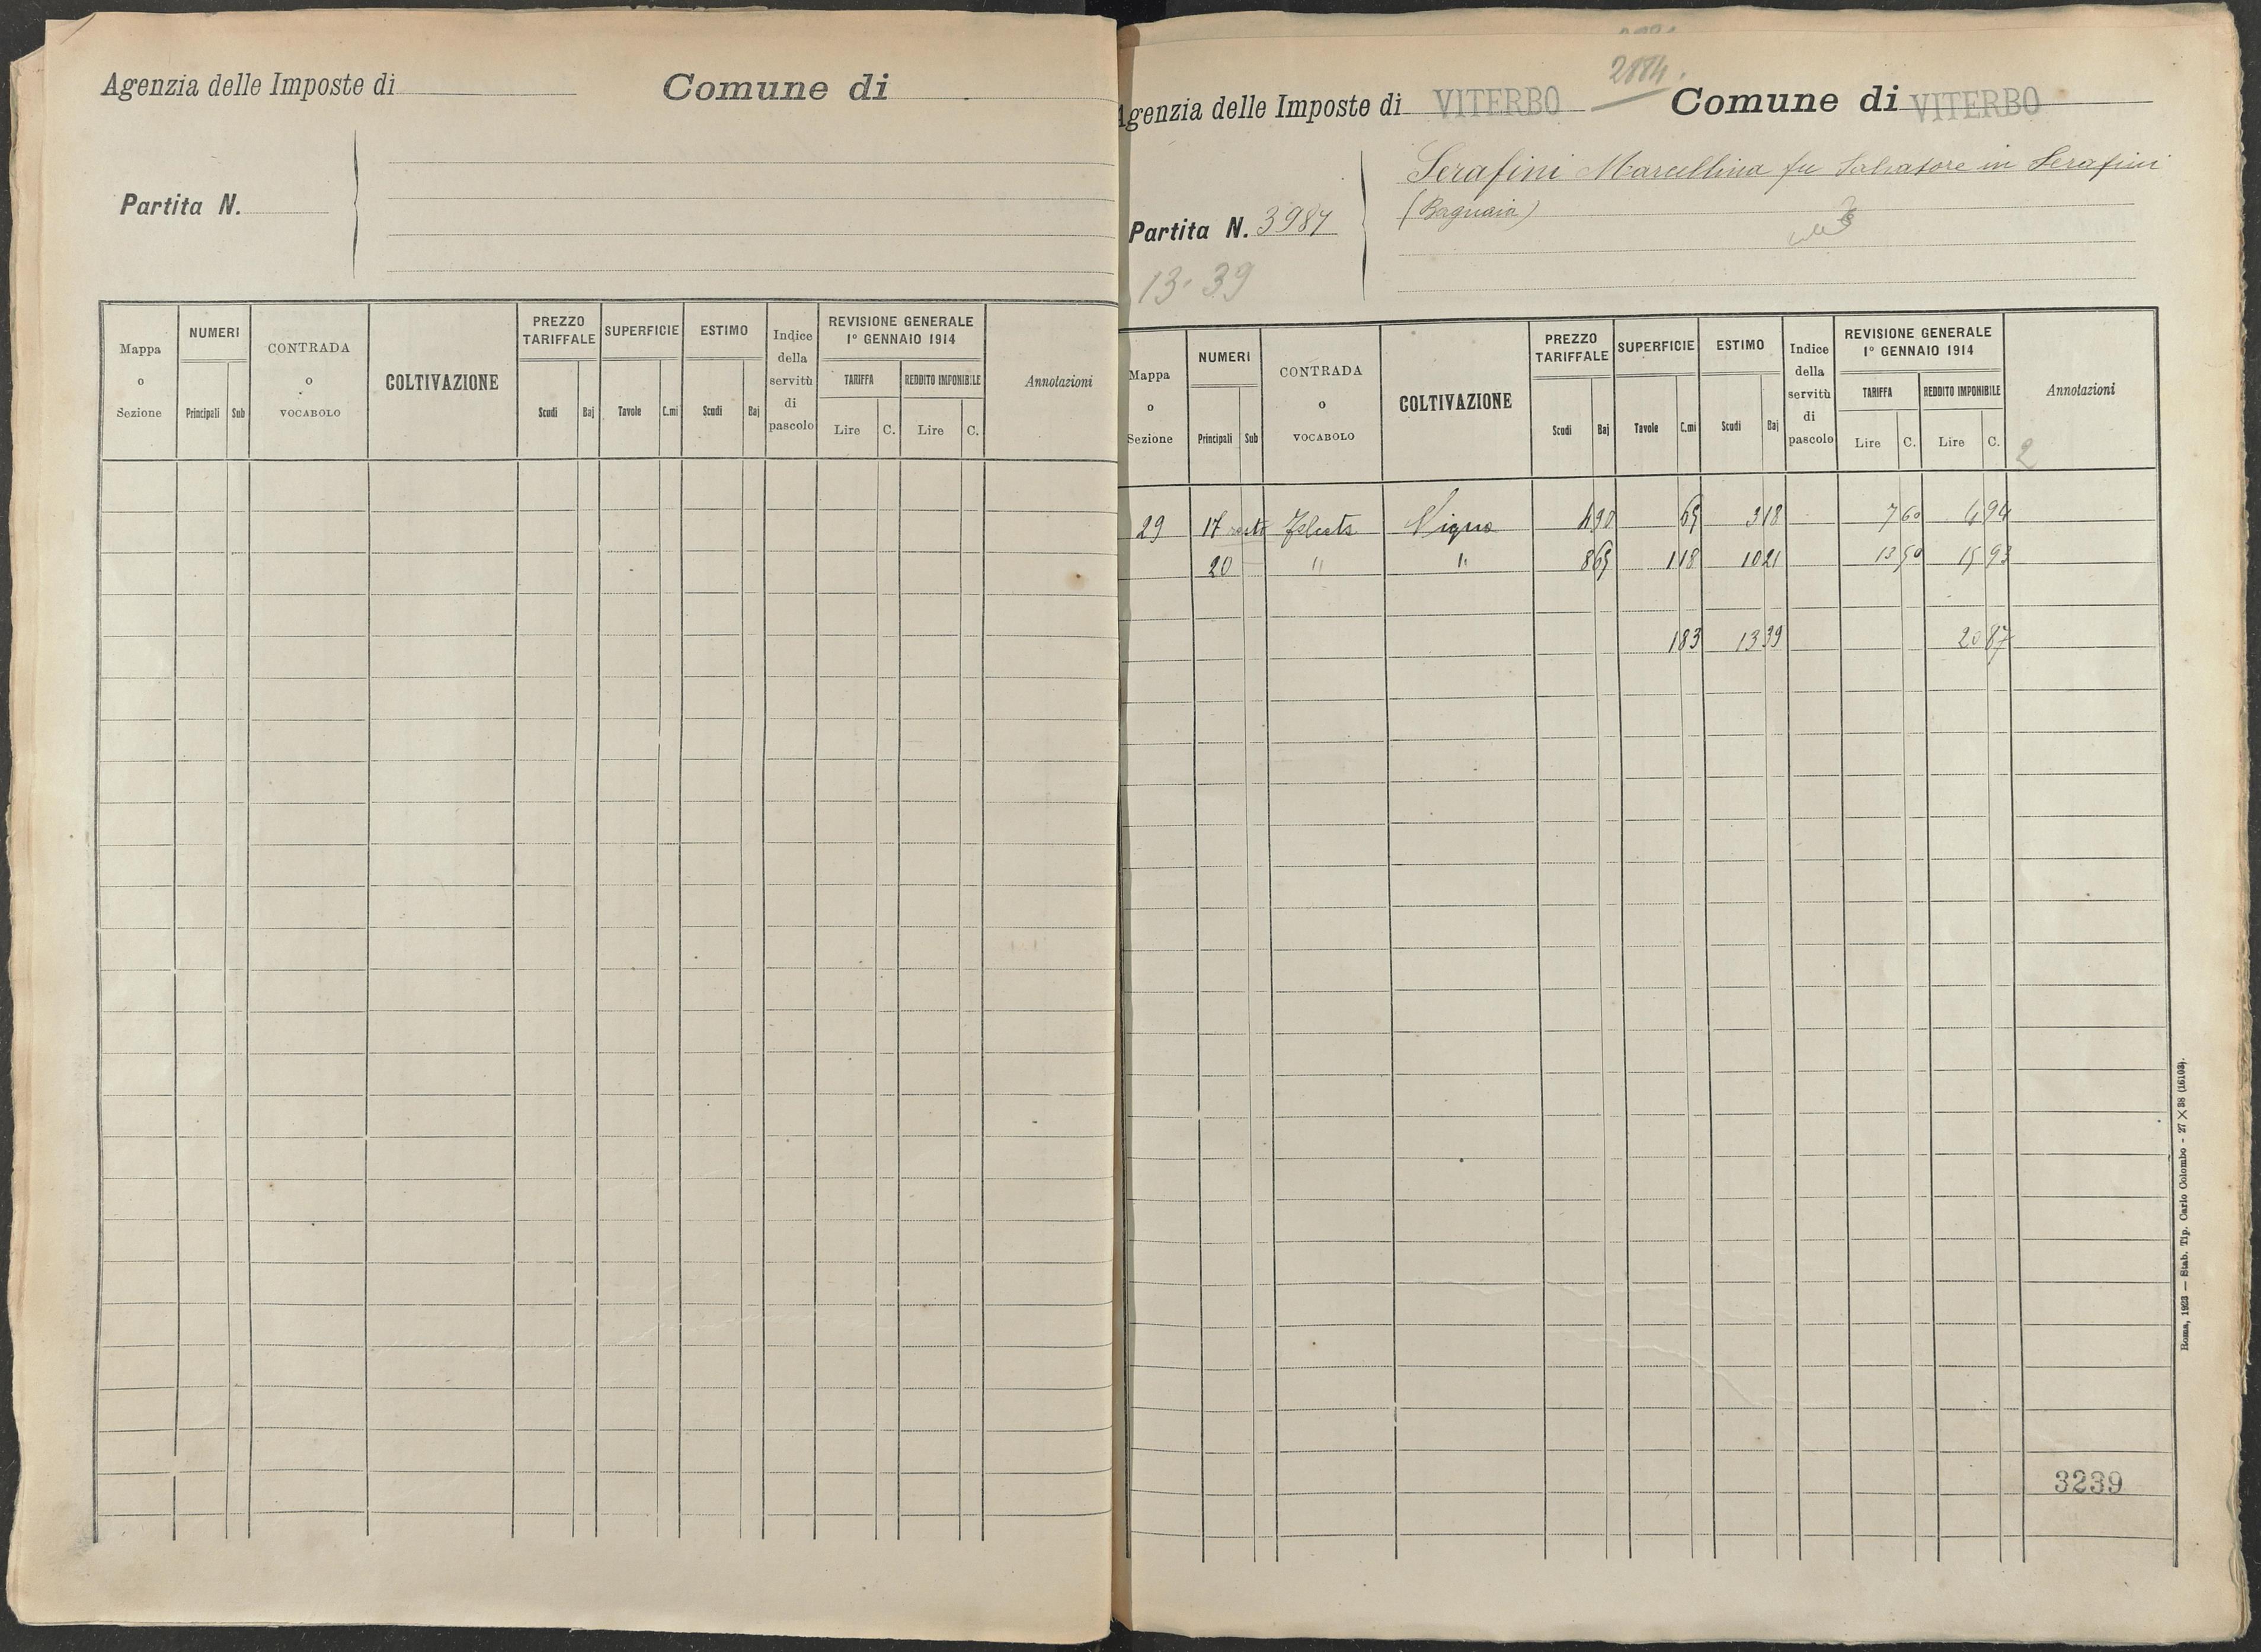 Agenzia delle Imposte di
Comune di
Partita N.
Mappa o Sezione
NUMERI
Principali Sub
CONTRADA o VOCABOLO
COLTIVAZIONE
PREZZO TARIFFALE
Scudi Baj
SUPERFICIE
Tavole C.mi
ESTIMO
Scudi Baj
Indice della servitù di pascolo
REVISIONE GENERALE
1° GENNAIO 1914
TARIFFA REDDITO IMPONIBILE
Lire C. Lire C.
Annotazioni
2884.
Agenzia delle Imposte di VITERBO
Comune di VITERBO
Serafini Marcellina fu Salvatore in Serafini
(Bagnaia)
Partita N. 3987
13-39
Mappa o Sezione
NUMERI
Principali Sub
CONTRADA o VOCABOLO
COLTIVAZIONE
PREZZO TARIFFALE
Scudi Baj
SUPERFICIE
Tavole C.mi
ESTIMO
Scudi Baj
Indice della servitù di pascolo
REVISIONE GENERALE
1° GENNAIO 1914
TARIFFA REDDITO IMPONIBILE
Lire C. Lire C.
Annotazioni
2
29 17 resto Vigna 4 90 65 3 18 7 60 4 94
20 " " 8 65 1 18 10 21 13 50 15 93
1 83 13 39 20 87
3239
Roma, 1923 — Stab. Tip. Carlo Colombo - 27 × 38 (16103).